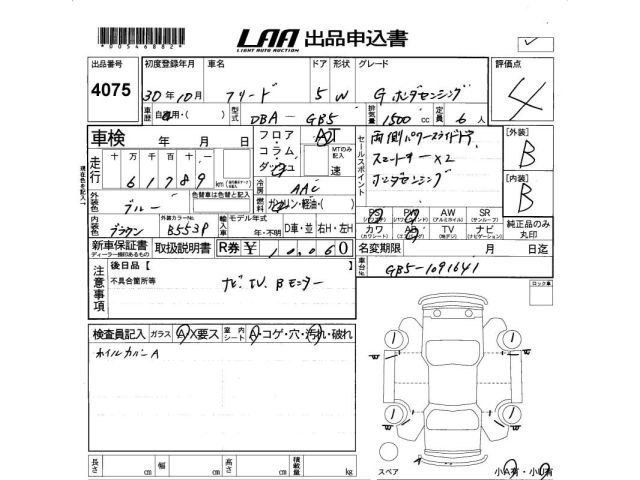 *00546882*
LAA 出品申込書
LIGHT AUTO AUCTION
出品番号 初度登録年月 車名 ドア 形状 グレード 評価点
4075 30年10月 フリード 5 W G ホンダセンシング 4
車歴 自家用・( ) 型式 DBA - GB5 排気量 1500 cc 定員 6 人
車検 年 月 日 フロア・コラム・ダッシュ AT MTのみ記入 速
セールスポイント 両側パワースライドドア
スマートキー×2
ホンダセンシング
[外装] B
[内装] B
走行 十万千百十一
61789 km
冷房 AAC
外装色 ブルー 色替車は色替と記入 燃料 ガソリン・軽油・( )
内装色 ブラウン 外装カラーNo. B553P 輸入車 モデル年式 年・不明 D車・並 右H・左H
PS PW AW SR
(パワステ) (パワーウィンド) (アルミホイル) (サンルーフ)
カワ AB TV ナビ
(カワシート) (エアバッグ) (地デジ) (ナビゲーション)
純正品のみ丸印
新車保証書 取扱説明書 R券 ¥ 10,060
ディーラー捺印あるもの
名変期限 月 日迄
車台No. GB5-1091641
注意事項 後日品【
不具合箇所等 ナビ、TV、Bモニター
ロック車
検査員記入 ガラス A・X要ス 室内シート A・コゲ・穴・汚れ・破れ
ホイルカバーA
長さ cm 幅 cm 高さ cm 積載量 kg
スペア
小A有・小U有